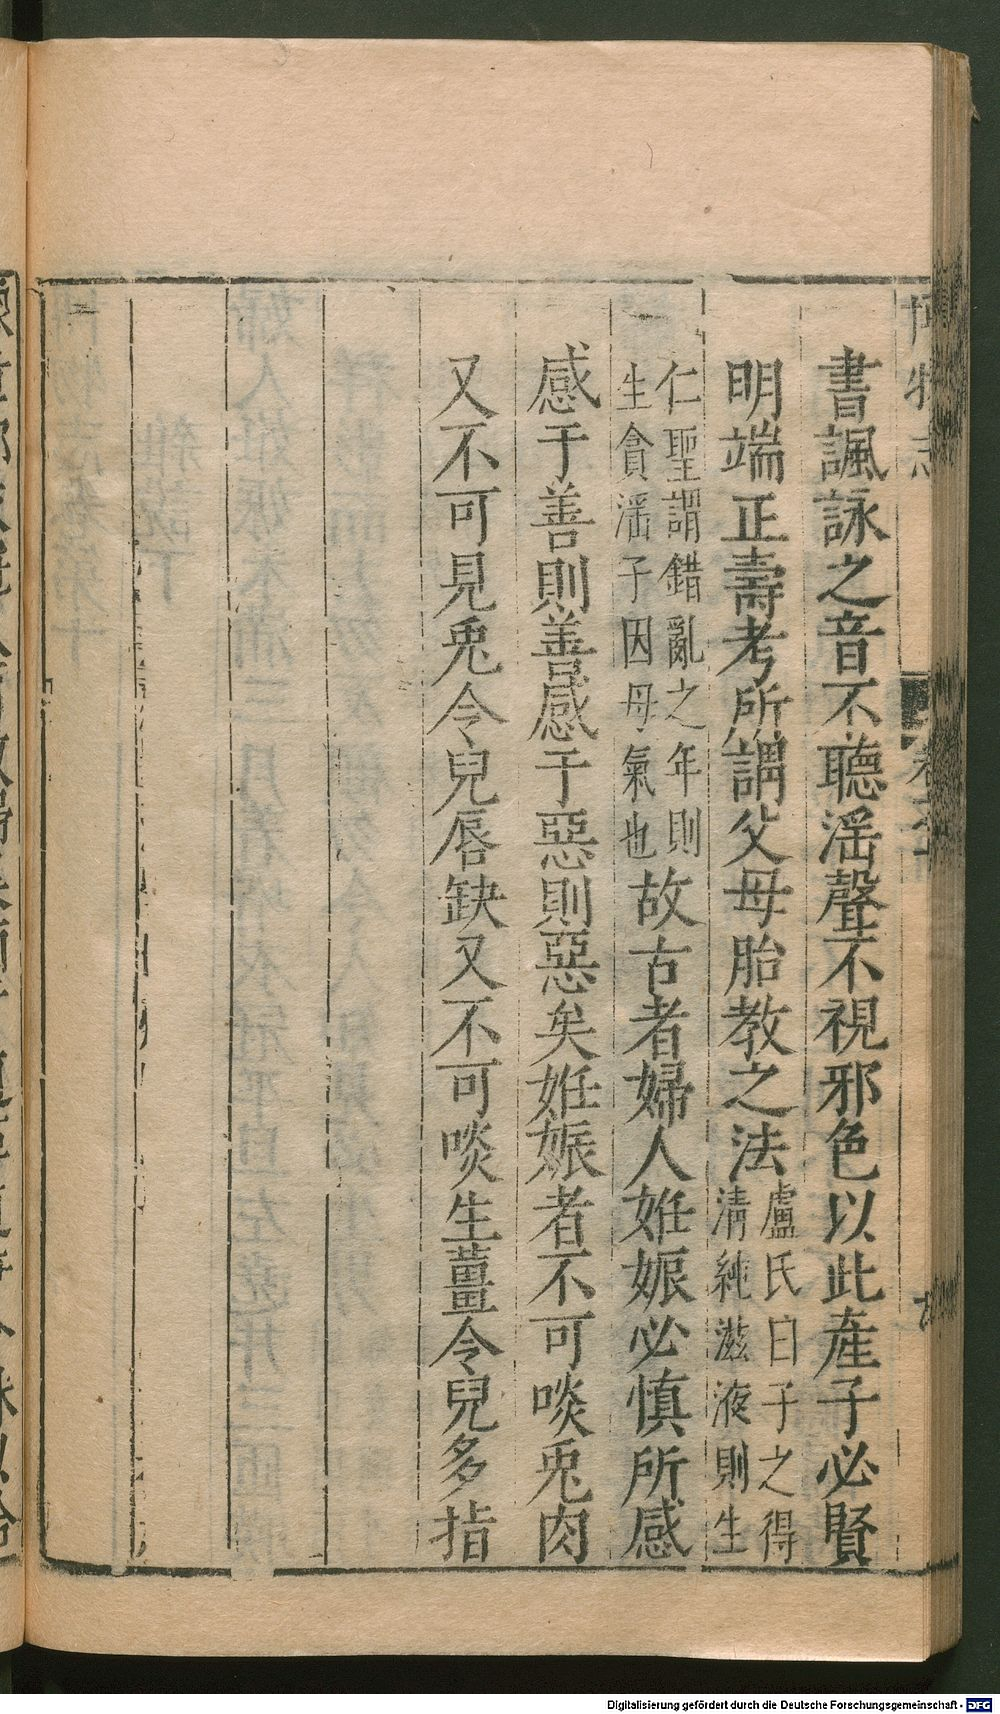 書諷詠之音不聽滛聲不視邪色以此産子必賢
明端正壽考所謂父母胎教之法
盧氏曰子之得
清純滋液則生
仁聖謂錯亂之年則
生貪滛子因母氣也
故古者婦人姙娠必慎所感
感于善則善感于惡則惡矣姙娠者不可啖兎肉
又不可見兎令兒唇缺又不可啖生薑令兒多指
Digitalisierung gefördert durch die Deutsche Forschungsgemeinschaft - DFG